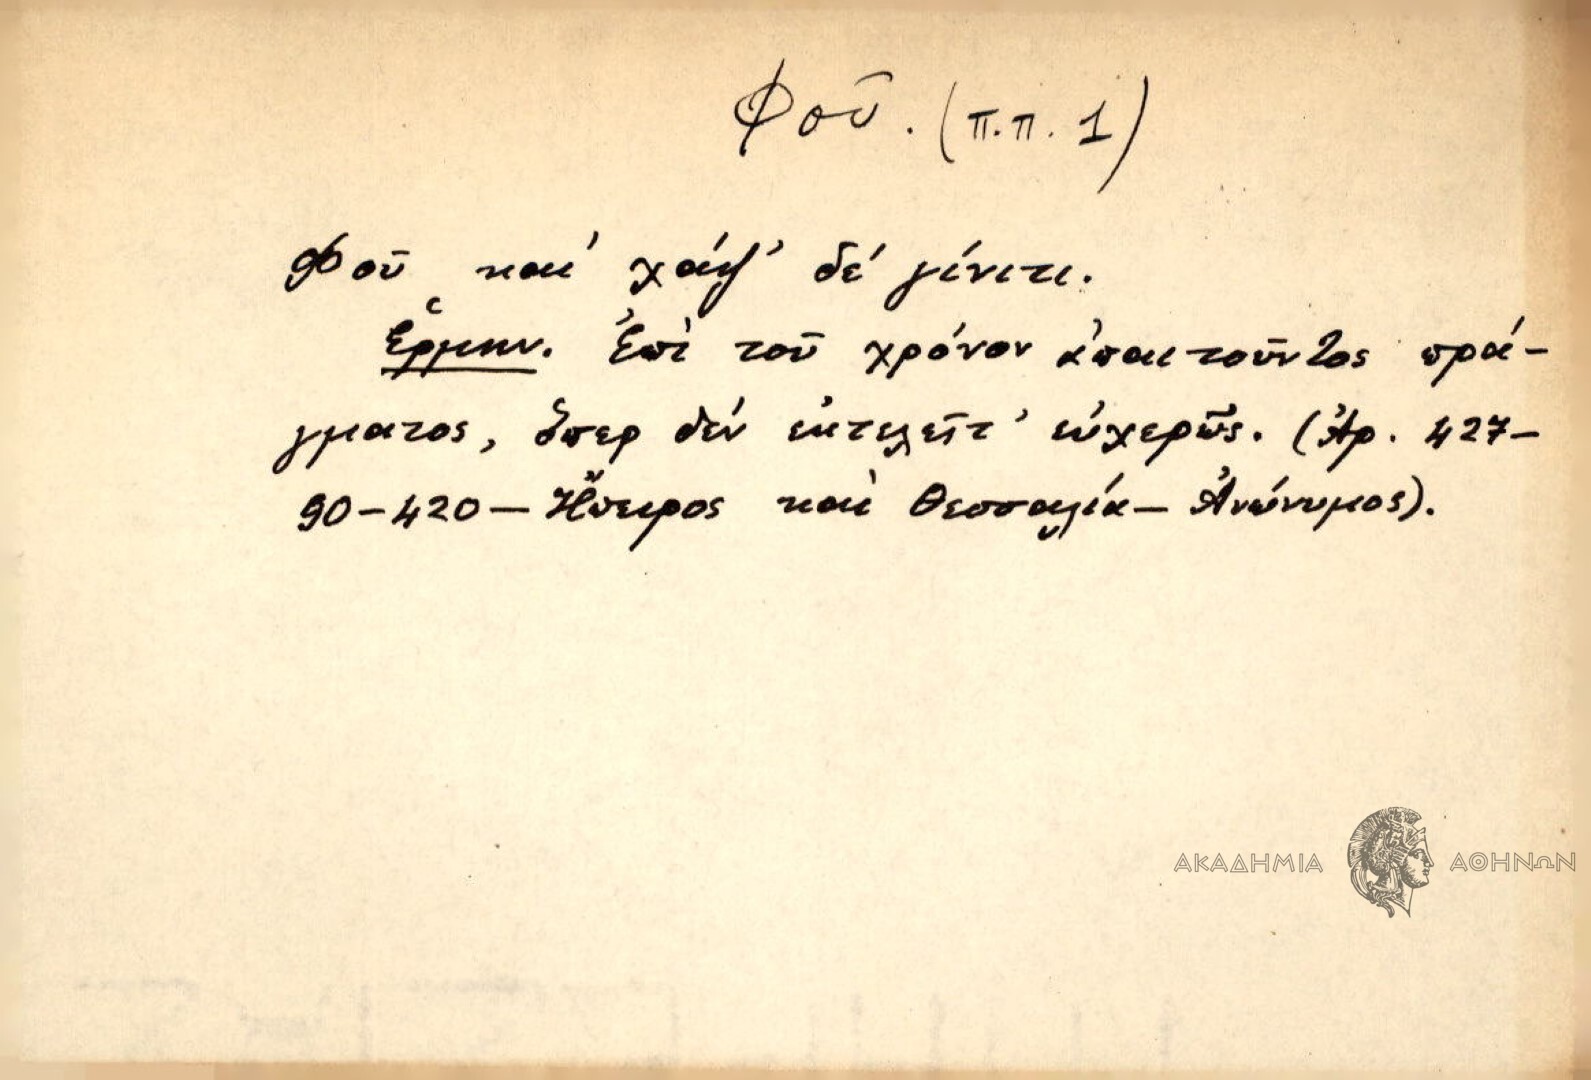 Φοῦ. (π.π. 1)
Φοῦ καί χάψ' δέ γίνιτι.
Ἑρμην. Ἐπὶ τοῦ χρόνον ἀπαιτοῦντος πρά-
γματος, ὅπερ δέν ἐκτελεῖτ' εὐχερῶς. (Ἀρ. 427-
90-420- Ἤπειρος καὶ Θεσσαλία- Ἀνώνυμος).
ΑΚΑΔΗΜΙΑ ΑΘΗΝΩΝ